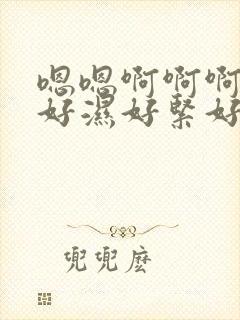 嗯嗯啊啊啊
好濕好緊好
兜兜麽